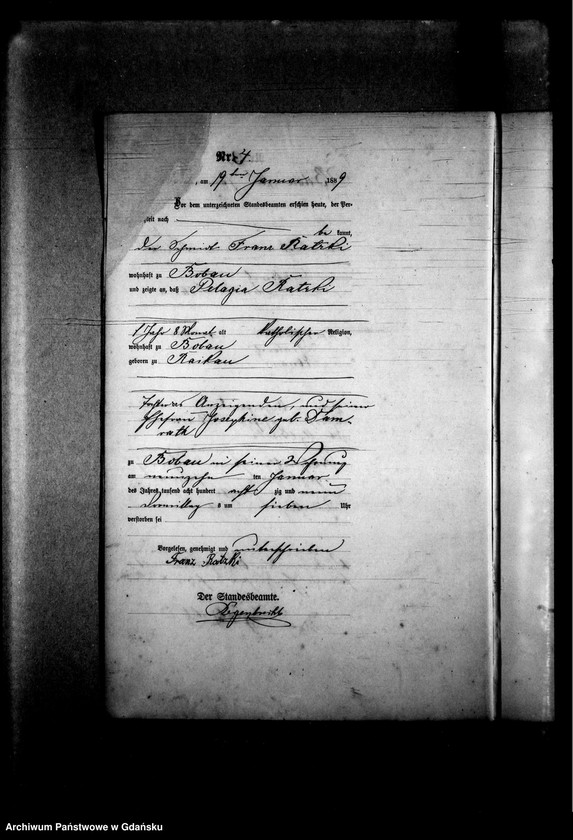 Nr. 4.
, am 19ten Januar 1889
Vor dem unterzeichneten Standesbeamten erschien heute, der Per-
nlichkeit nach
be kannt,
der Schmidt Franz Ratzki
wohnhaft zu Bobau
und zeigte an, daß Pelagia Ratzki
1 Jahr 8 Monat alt katholischer Religion,
wohnhaft zu Bobau
geboren zu Raikau
Tochter des Anzeigenden, und seiner
Ehefrau Josephine geb. Dam-
rath
zu Bobau in seiner Wohnung
am neunzehn ten Januar
des Jahres tausend acht hundert acht zig und neun
Vormittag s um sieben Uhr
verstorben sei
Vorgelesen, genehmigt und unterschrieben
Franz Ratzki
Der Standesbeamte.
Archiwum Państwowe w Gdańsku